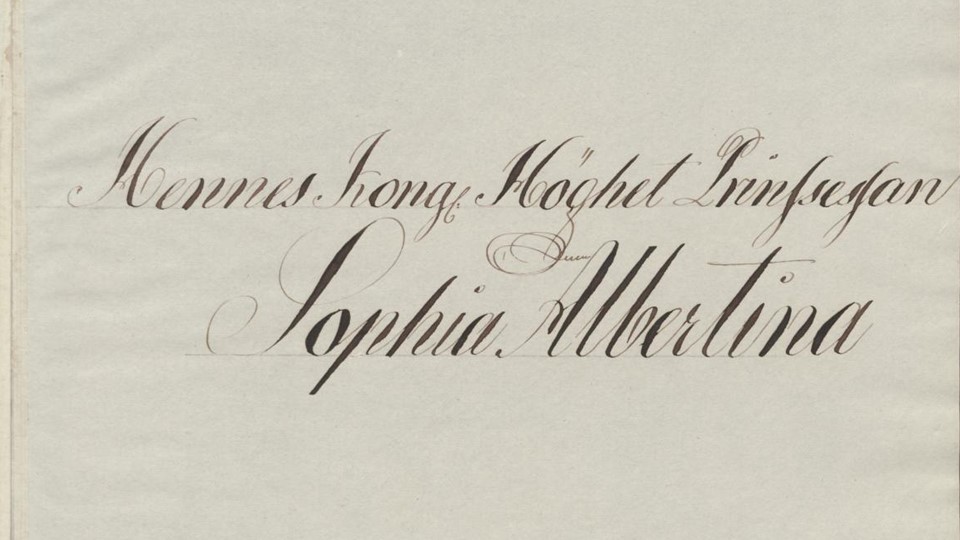 Hennes Kong. Höghet Prinsessan
Sophia Albertina